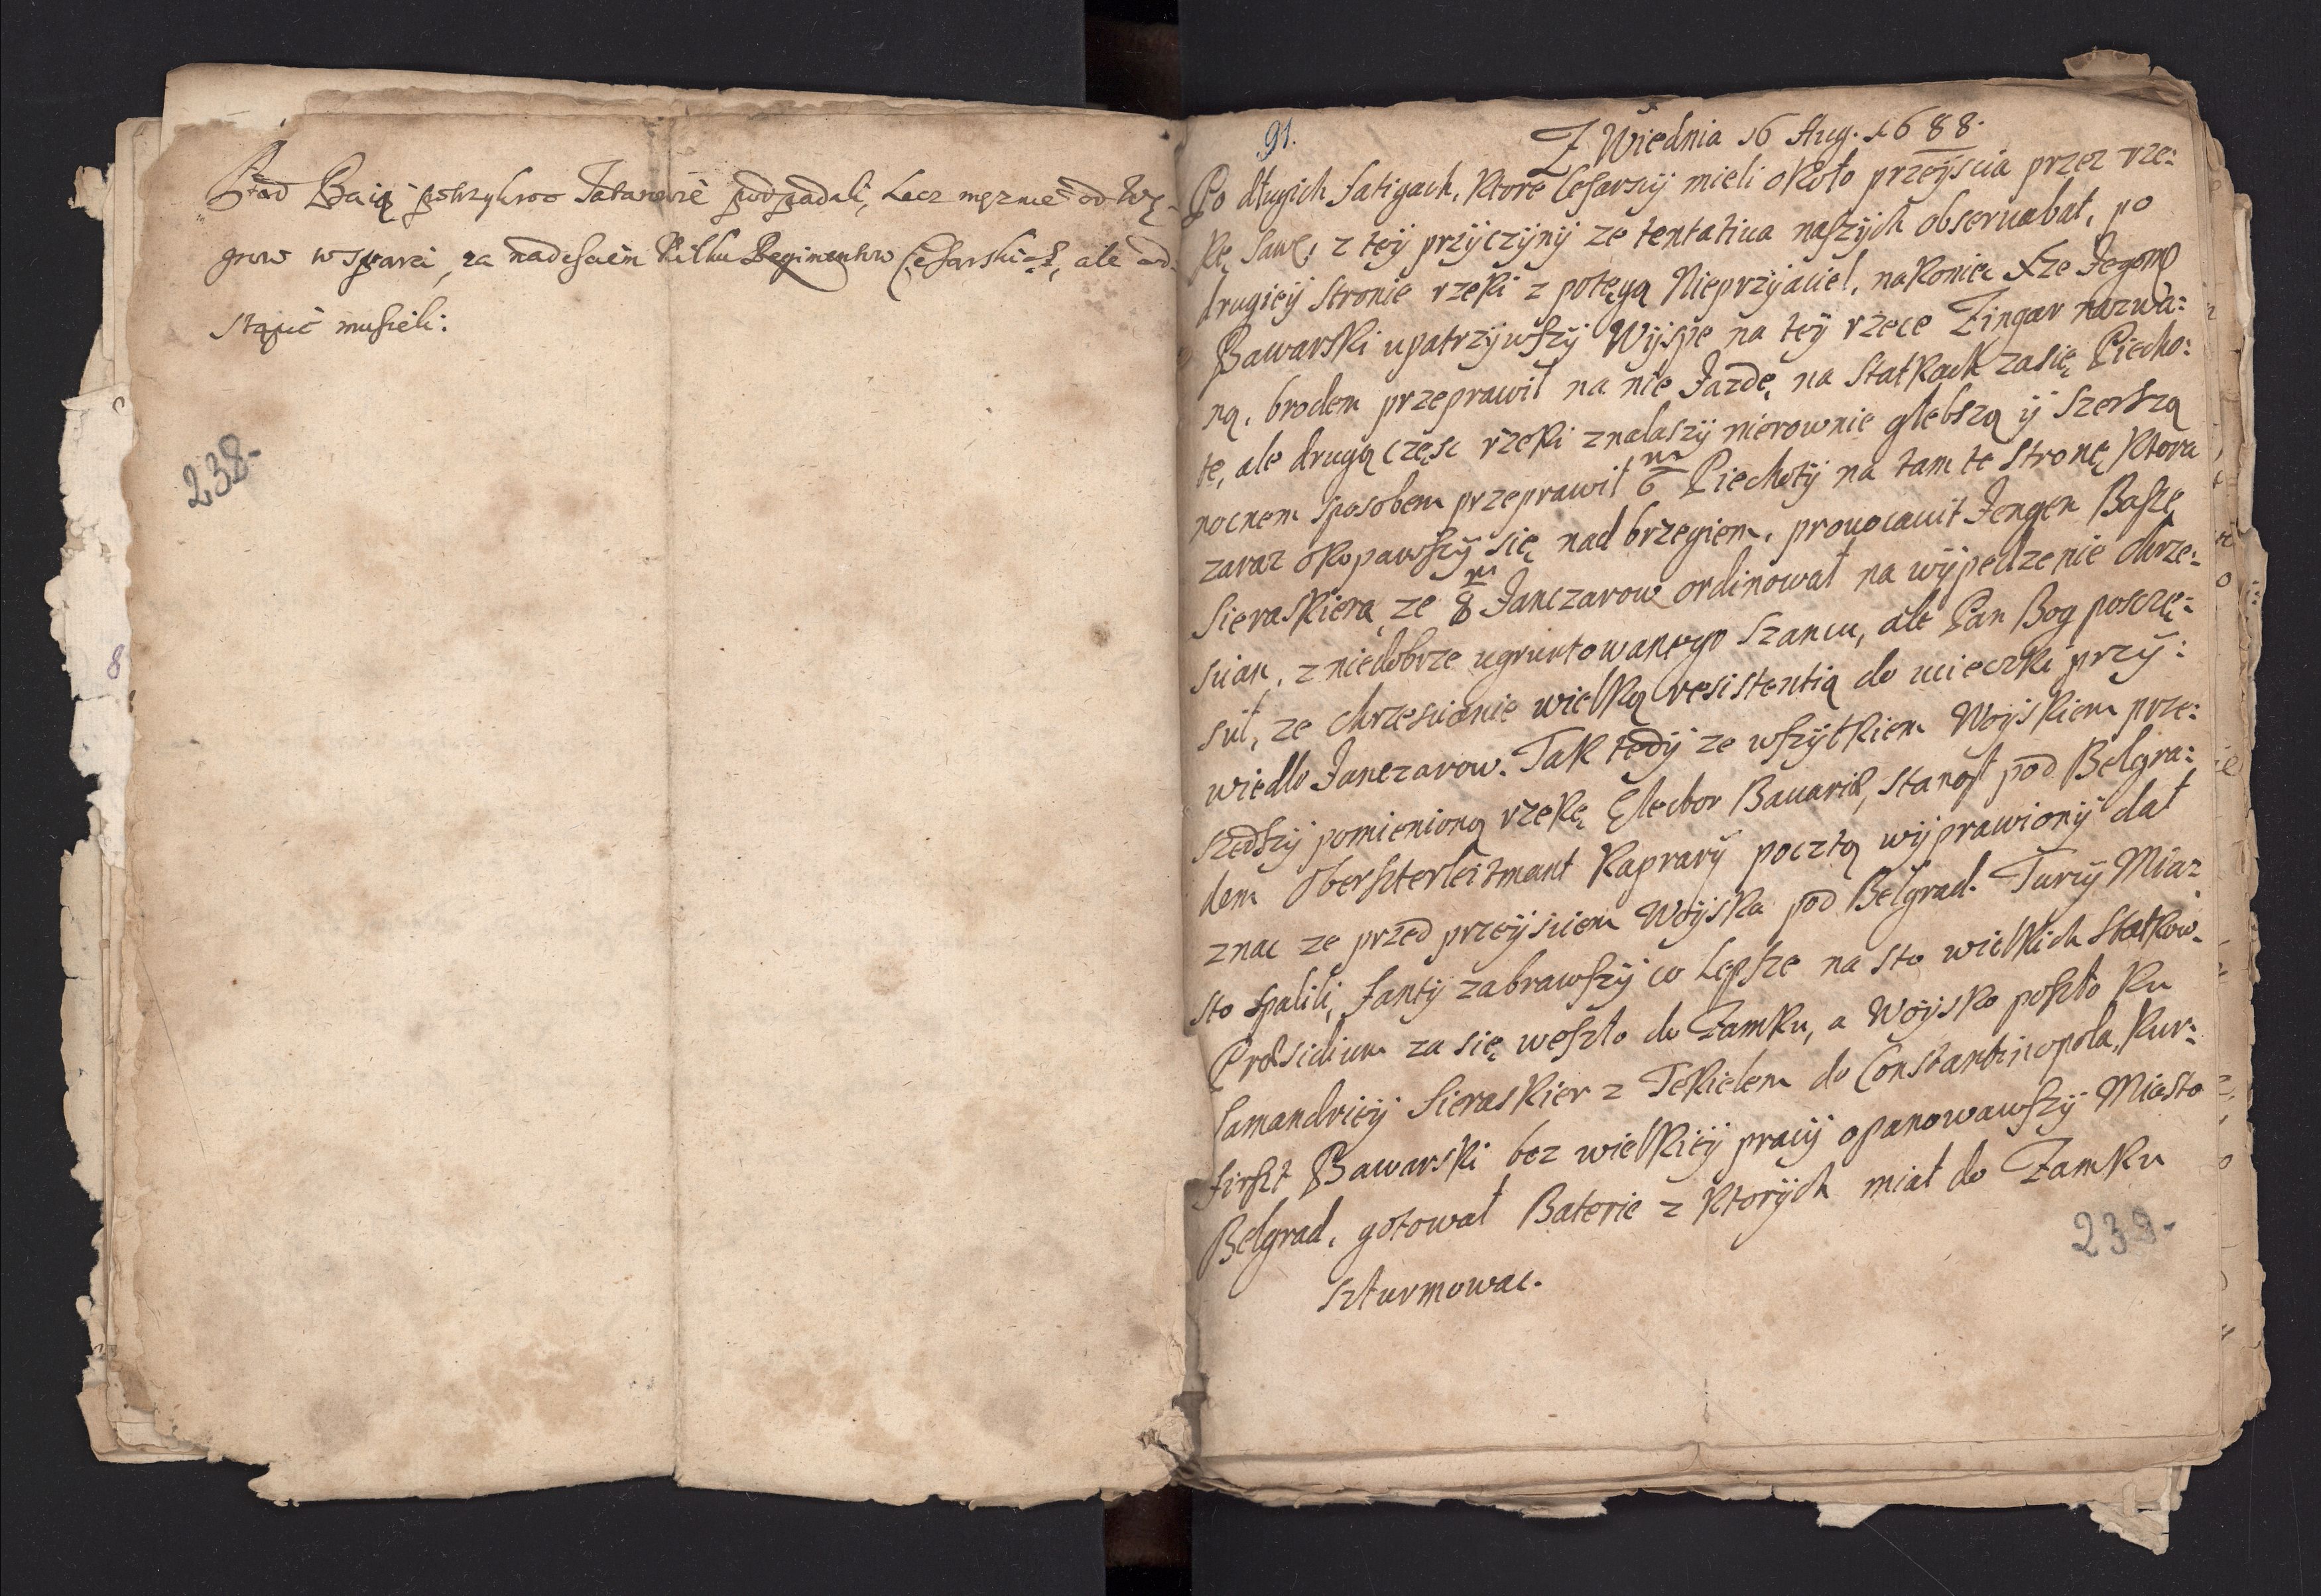 Pod Baią potrzykroc Tatarowie podpadali, Lecz męznie od Wę-
grow wsparci, za nadesciem kilku Regimentow Cesarskich, ale od-
stąpic musieli:
238-
8
91.
Z Wiednia 16 Aug. 1688.
Po długich fatigach, ktore Cesarscy mieli około przeyscia przez rze:
kę Sawę, z tey przyczyny ze tentativa naszych observabat, po
drugiey stronie rzeki z potęgą Nieprzyiaciel, nakoniec Xze Jegomo
Bawarski upatrzywszy Wyspe na tey rzece Zingar nazwa:
ną, brodem przeprawił na nie Jazdę, na statkach zasię Piecho:
tę, ale drugą częsc rzeki znalaszy nierownie głebszą y szerszą
nocnem sposobem przeprawił 6 m Piechoty na tam te stronę ktora
zaraz okopawszy się nad brzegiem, provocavit Jengen Baszę
Sieraskiera, ze 8 m Janczarow ordinował na wypedzenie chrze:
scian, z niedobrze ugruntowanego szancu, ale Pan Bog poszczę:
scił, ze chrzescianie wielką resistentią do ucieczki przy:
wiedlo Janczarow. Tak tedy ze wszytkiem Woyskiem prze:
szedszy pomienioną rzekę Elector Bavariæ, stanął pod Belgra:
dem Oberszterleitmant Kaprary pocztą wyprawiony dał
znac ze przed przeysciem Woyska pod Belgrad. Turcy Mia:
sto spalili, fanty zabrawszy co Lepsze na sto wielkich statkow.
Præsidium za się weszło do Zamku, a Woysko poszło ku
Samandriey Sieraskier z Tekielem do Constantinopola, Kur:
firszt Bawarski bez wielkiey pracy opanowawszy Miasto
Belgrad, gotował Baterie z ktorych miał do Zamku
szturmowac.
239-